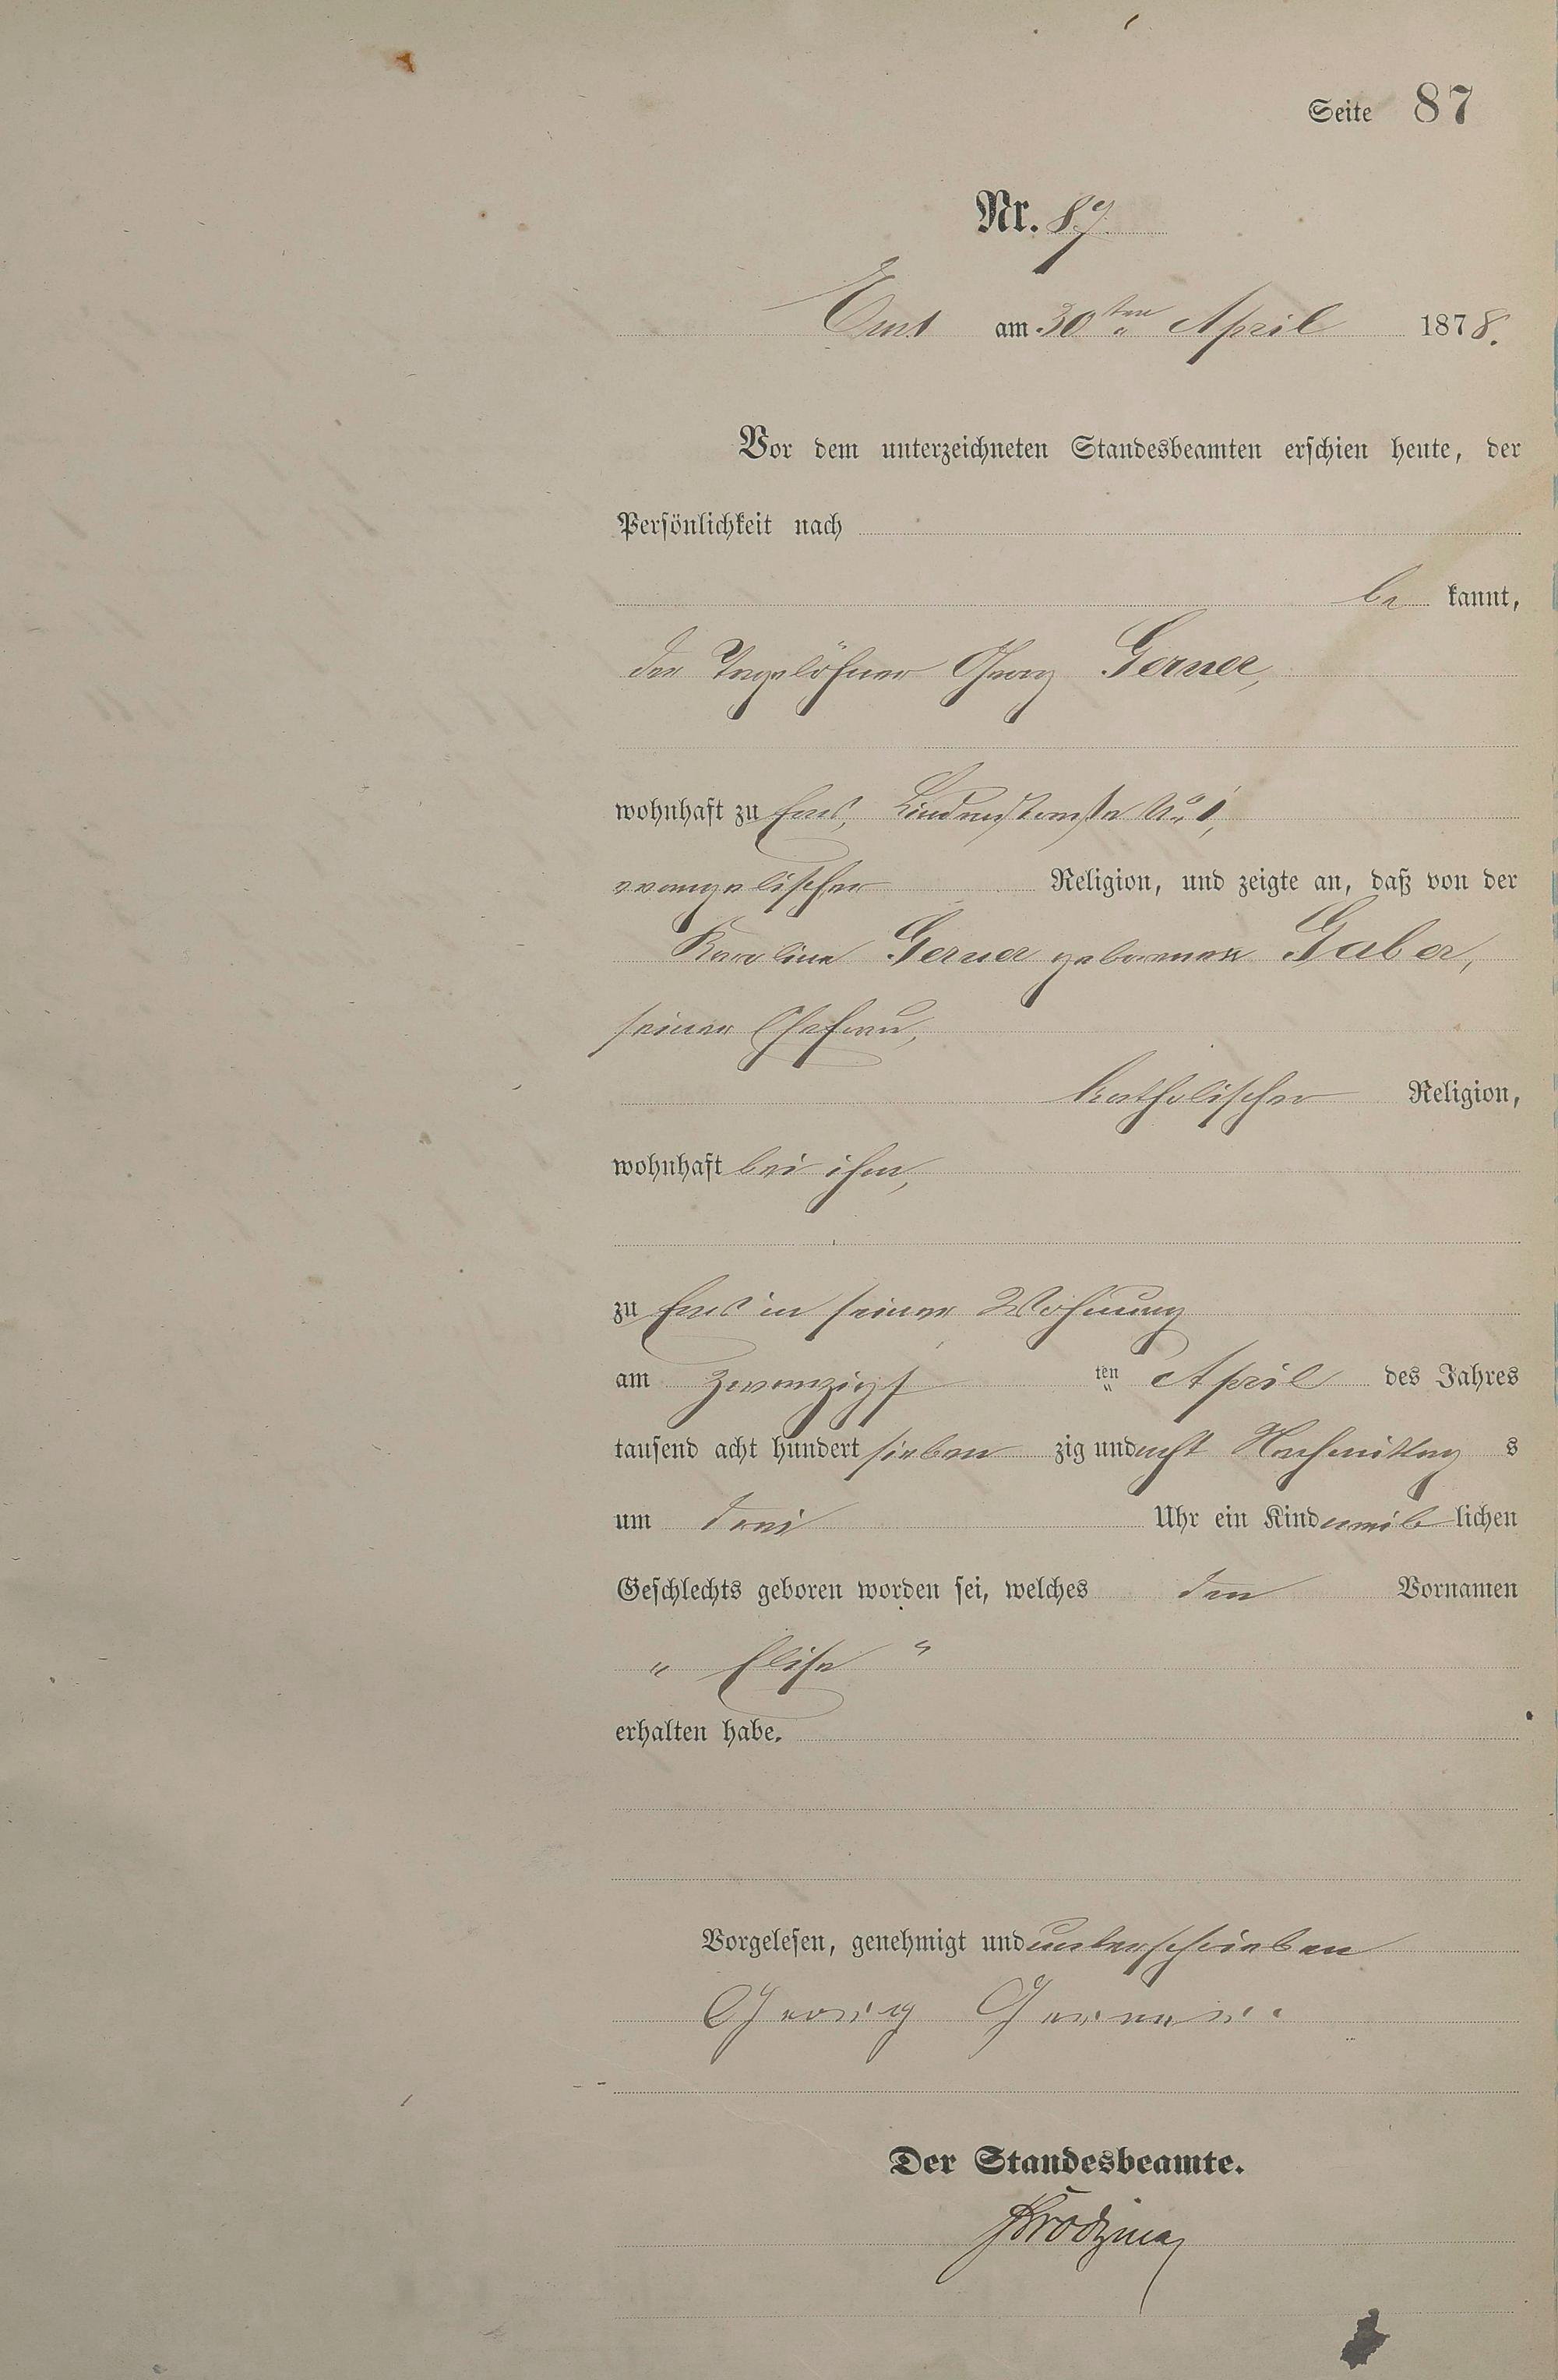 Seite 87
Nr. 87.
Ems am 30ten April 1878.
Vor dem unterzeichneten Standesbeamten erschien heute, der
Persönlichkeit nach
be kannt,
der Tagelöhner Georg Gerner,
wohnhaft zu Ems, Lindenstraße No 1,
evangelischer Religion, und zeigte an, daß von der
Karoline Gerner geborenen Gaber,
seiner Ehefrau,
katholischer Religion,
wohnhaft bei ihm,
zu Ems in seiner Wohnung
am zwanzigs ten April des Jahres
tausend acht hundert sieben zig und acht Nachmittag s
um drei Uhr ein Kind weib lichen
Geschlechts geboren worden sei, welches den Vornamen
" Elise "
erhalten habe.
Vorgelesen, genehmigt und unterschrieben
Georg Gerner
Der Standesbeamte.